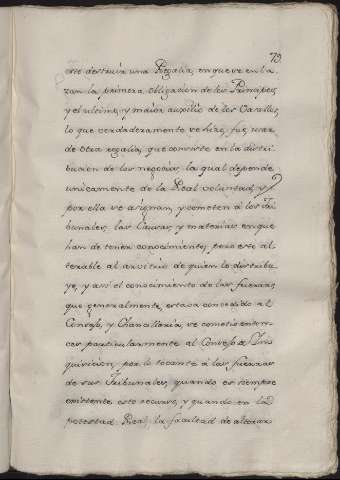 79
esto destruía una Regalia, en que se enla
zan la primera obligacion de los Principes,
y el ultimo, y maior auxilio de los Vasallos,
lo que verdaderamente se hizo, fue usar
de otra regalia, que consiste en la distri
bucion de los negocios, la qual depende
unicamente de la Real voluntad, y
por ella se asignan, y cometen á los Tri
bunales, las Causas, y materias en que
han de tener conocimiento; pero esto al
terable al arvitrio de quien lo distribu
ye, y asi el conocimiento de las fuerzas
que generalmente, estava concedido al
Consejo, y Chancilleria, se cometió enton
ces particularmente al Consejo de Inq
quisicion, por lo tocante á las fuerzas
de sus Tribunales, quando es siempre
existente este recurso, y quando en la
potestad Real, la facultad de alzar